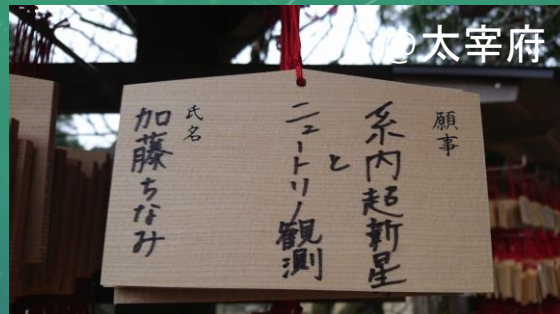 @太宰府
願事
系内超新星
と
ニュートリノ観測
氏名
加藤ちなみ